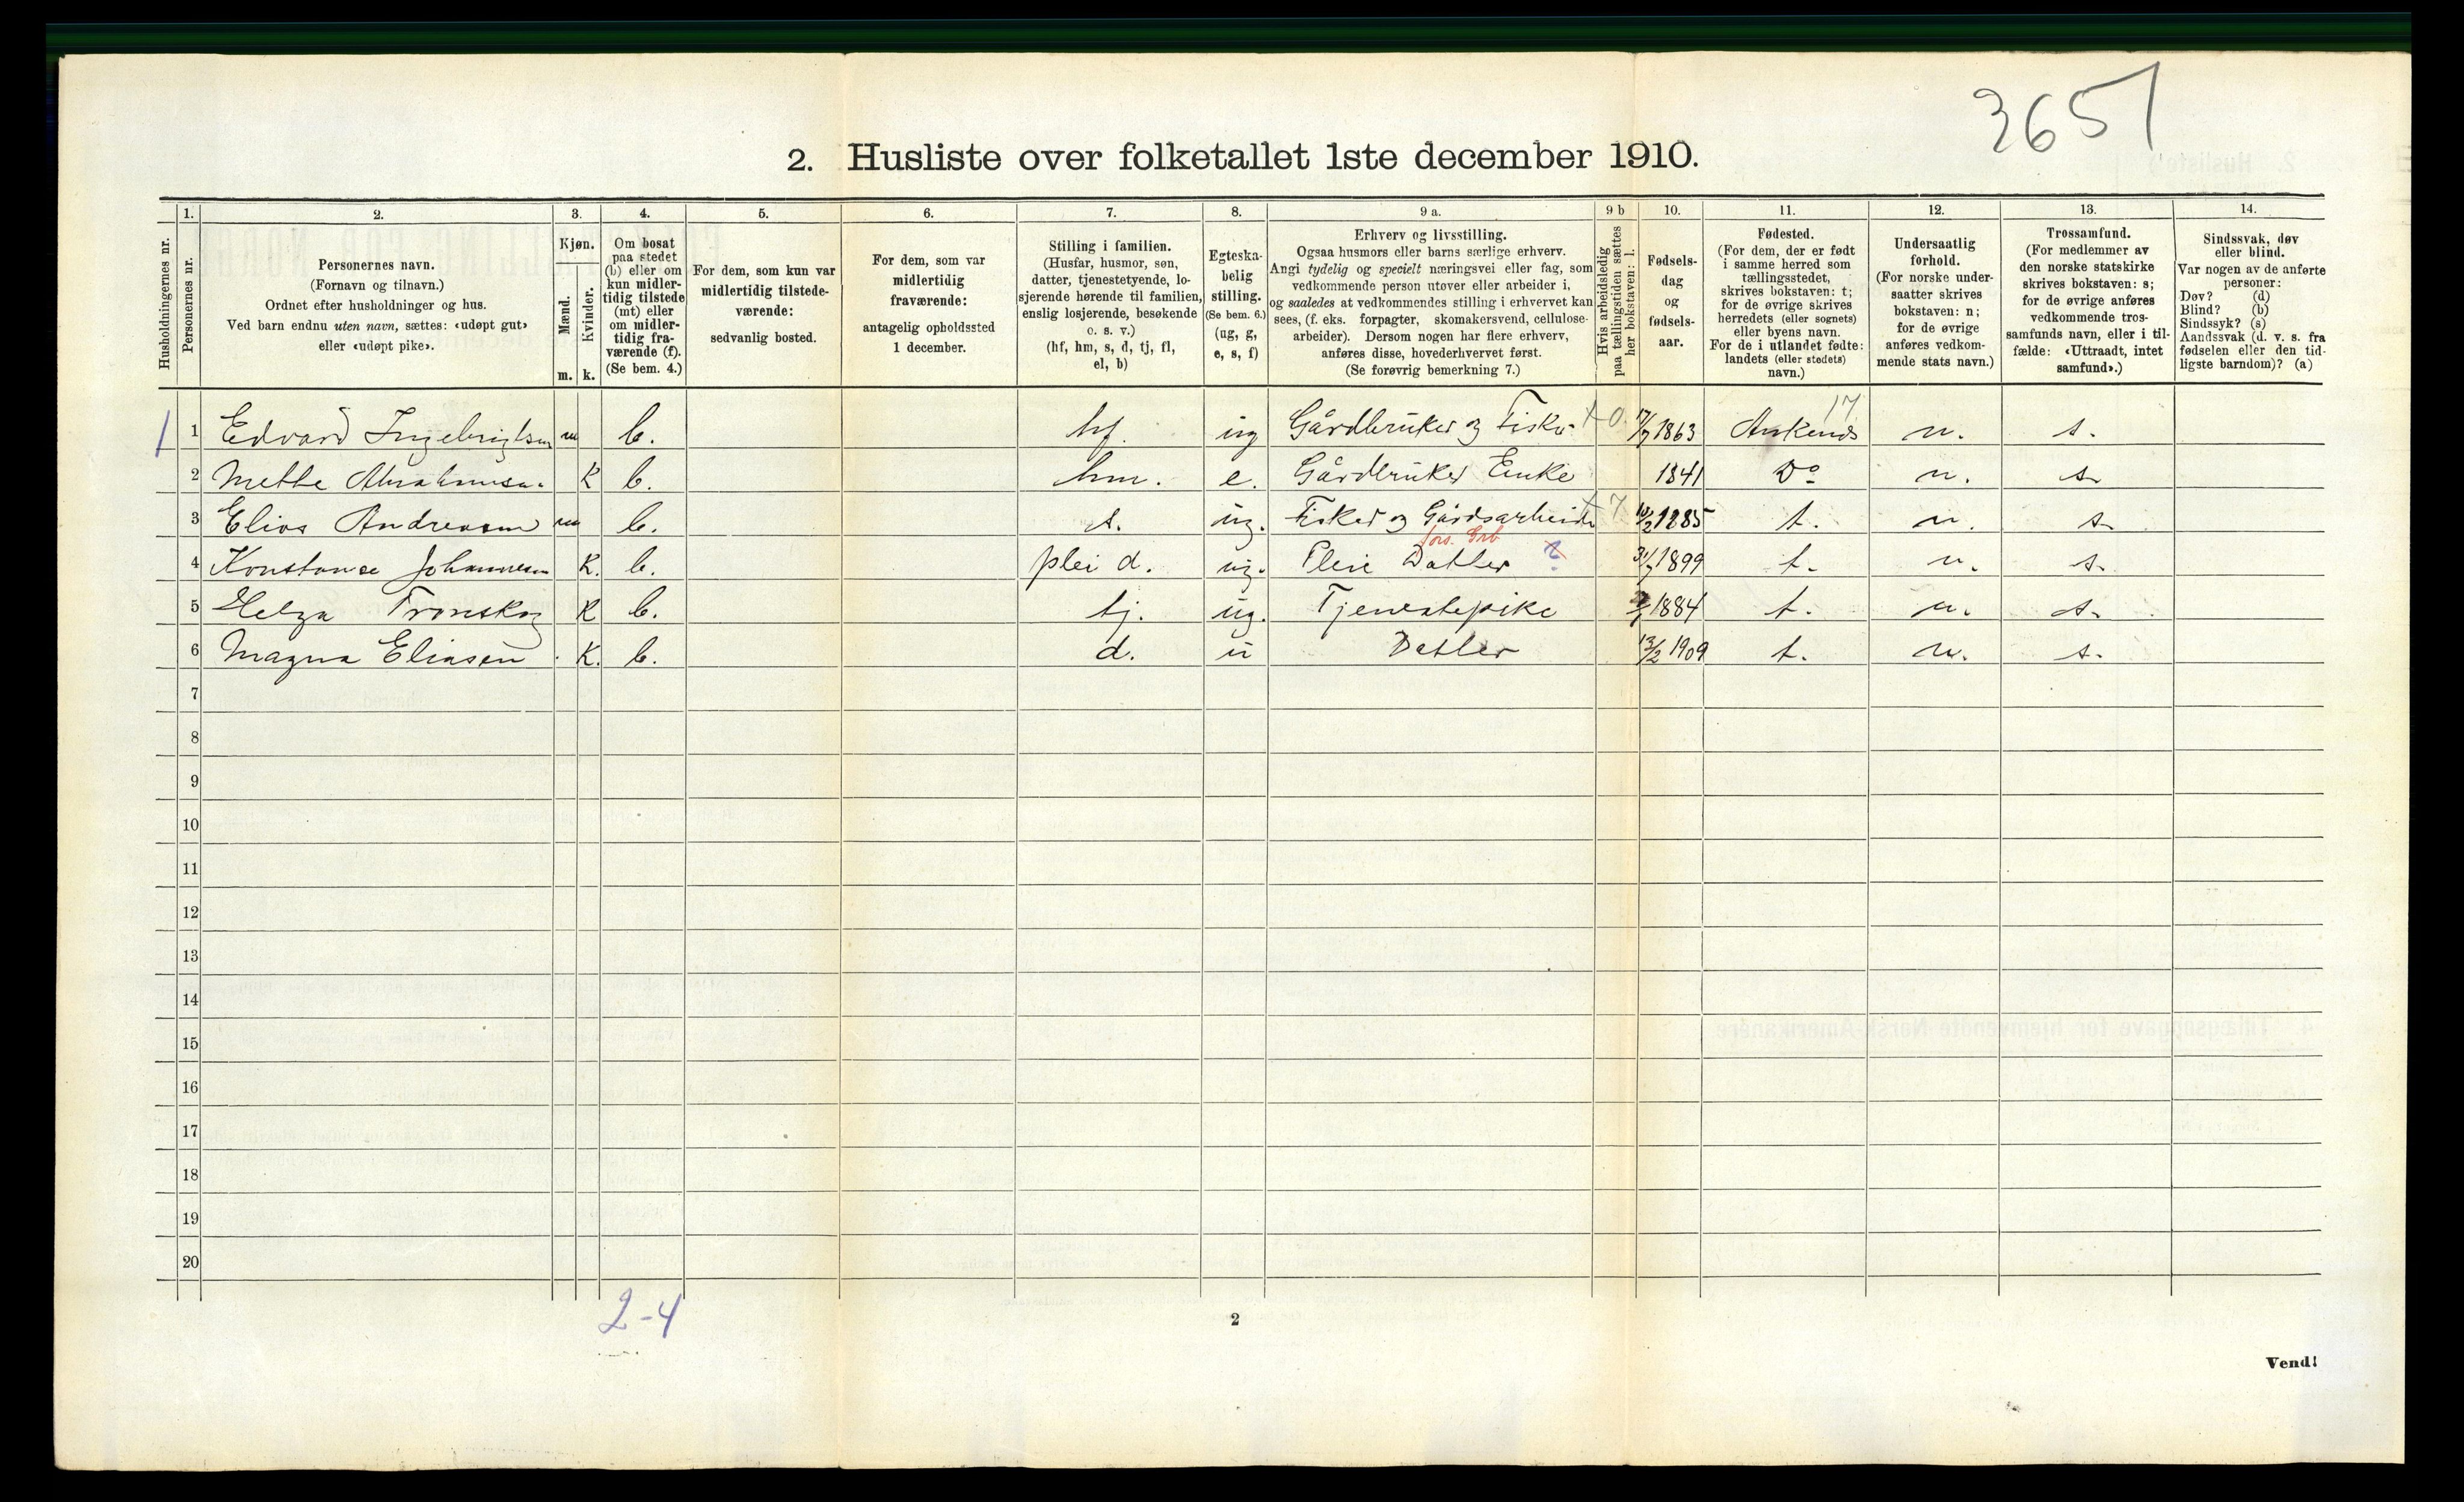 3657
2. Husliste over folketallet 1ste december 1910.
1. 2. 3. 4. 5. 6. 7. 8. 9 a. 9 b 10. 11. 12. 13. 14.
Husholdningernes nr.
Personernes nr.
Personernes navn.
(Fornavn og tilnavn.)
Ordnet efter husholdninger og hus.
Ved barn endnu uten navn, sættes: «udøpt gut»
eller «udøpt pike».
Kjøn.
Mænd.
Kvinder.
m. k.
Om bosat
paa stedet
(b) eller om
kun midler-
tidig tilstede
(mt) eller
om midler-
tidig fra-
værende (f).
(Se bem. 4.)
For dem, som kun var
midlertidig tilstede-
værende:
sedvanlig bosted.
For dem, som var
midlertidig
fraværende:
antagelig opholdssted
1 december.
Stilling i familien.
(Husfar, husmor, søn,
datter, tjenestetyende, lo-
sjerende hørende til familien,
enslig losjerende, besøkende
o. s. v.)
(hf, hm, s, d, tj, fl,
el, b)
Egteska-
belig
stilling.
(Se bem. 6.)
(ug, g,
e, s, f)
Erhverv og livsstilling.
Ogsaa husmors eller barns særlige erhverv.
Angi tydelig og specielt næringsvei eller fag, som
vedkommende person utøver eller arbeider i,
og saaledes at vedkommendes stilling i erhvervet kan
sees, (f. eks. forpagter, skomakersvend, cellulose-
arbeider). Dersom nogen har flere erhverv,
anføres disse, hovederhvervet først.
(Se forøvrig bemerkning 7.)
Hvis arbeidsledig
paa tællingstiden sættes
her bokstaven: l.
Fødsels-
dag
og
fødsels-
aar.
Fødested.
(For dem, der er født
i samme herred som
tællingsstedet,
skrives bokstaven: t;
for de øvrige skrives
herredets (eller sognets)
eller byens navn.
For de i utlandet fødte:
landets (eller stedets)
navn.)
Undersaatlig
forhold.
(For norske under-
saatter skrives
bokstaven: n;
for de øvrige
anføres vedkom-
mende stats navn.)
Trossamfund.
(For medlemmer av
den norske statskirke
skrives bokstaven: s;
for de øvrige anføres
vedkommende tros-
samfunds navn, eller i til-
fælde: «Uttraadt, intet
samfund».)
Sindssvak, døv
eller blind.
Var nogen av de anførte
personer:
Døv? (d)
Blind? (b)
Sindssyk? (s)
Aandssvak (d. v. s. fra
fødselen eller den tid-
ligste barndom)? (a)
17
1 1 Edvard Ingebrigtsen m b. hf. ug Gårdbruker og Fisker 0. 17/7 1863 Ankenes n. s.
2 Mette Abrahamsen K b. hm. e. Gårdbruker Enke 1841 Do n. s.
3 Elias Andreasen m b. s. ug. Fisker og Gårdsarbeide 7 1885 t. n. s.
fors. Grb
4 Konstanse Johannesen K. b. plei d. ug. Pleie Datter 31/7 1899 t. n. s.
5 Helga K b. tj. ug. Tjenestepike 1884 t. n. s.
6 Magna Eliasen K. b. d. u Datter 13/2 1909 t. n. s.
7
8
9
10
11
12
13
14
15
16
17
18
19
20
2-4
2
Vend!